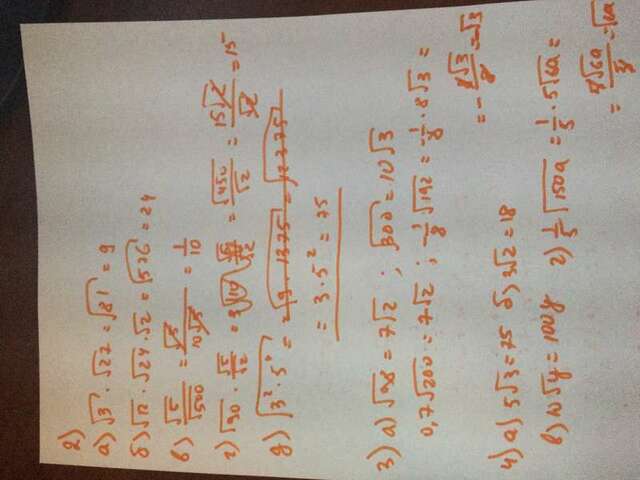 2)
а) √3 · √27 = √81 = 9
б) √12 · √24 · √2 = √576 = 24
в) √5/√500 = √5/10√5 = 1/10
г) √90 · √5/√2 = = √450/√2 = 15√2/√2 = 15
д) √3² · 5⁴ = = √9 · 1375 = √12375
= 3 · 5² = 75
3) а) √98 = 7√2 ; √300 = 10√3
0,7√200 = 7√2 ; -1/8 √192 = -1/8 · 8√3 =
= - 8√3/8 = -√3
4) а) 5√3 = 75 б) 3√2 = 18
в) 10√y = 100y г) 1/5 √150a = 1/5 · 5√6a =
= 5√6a/5 = √6a